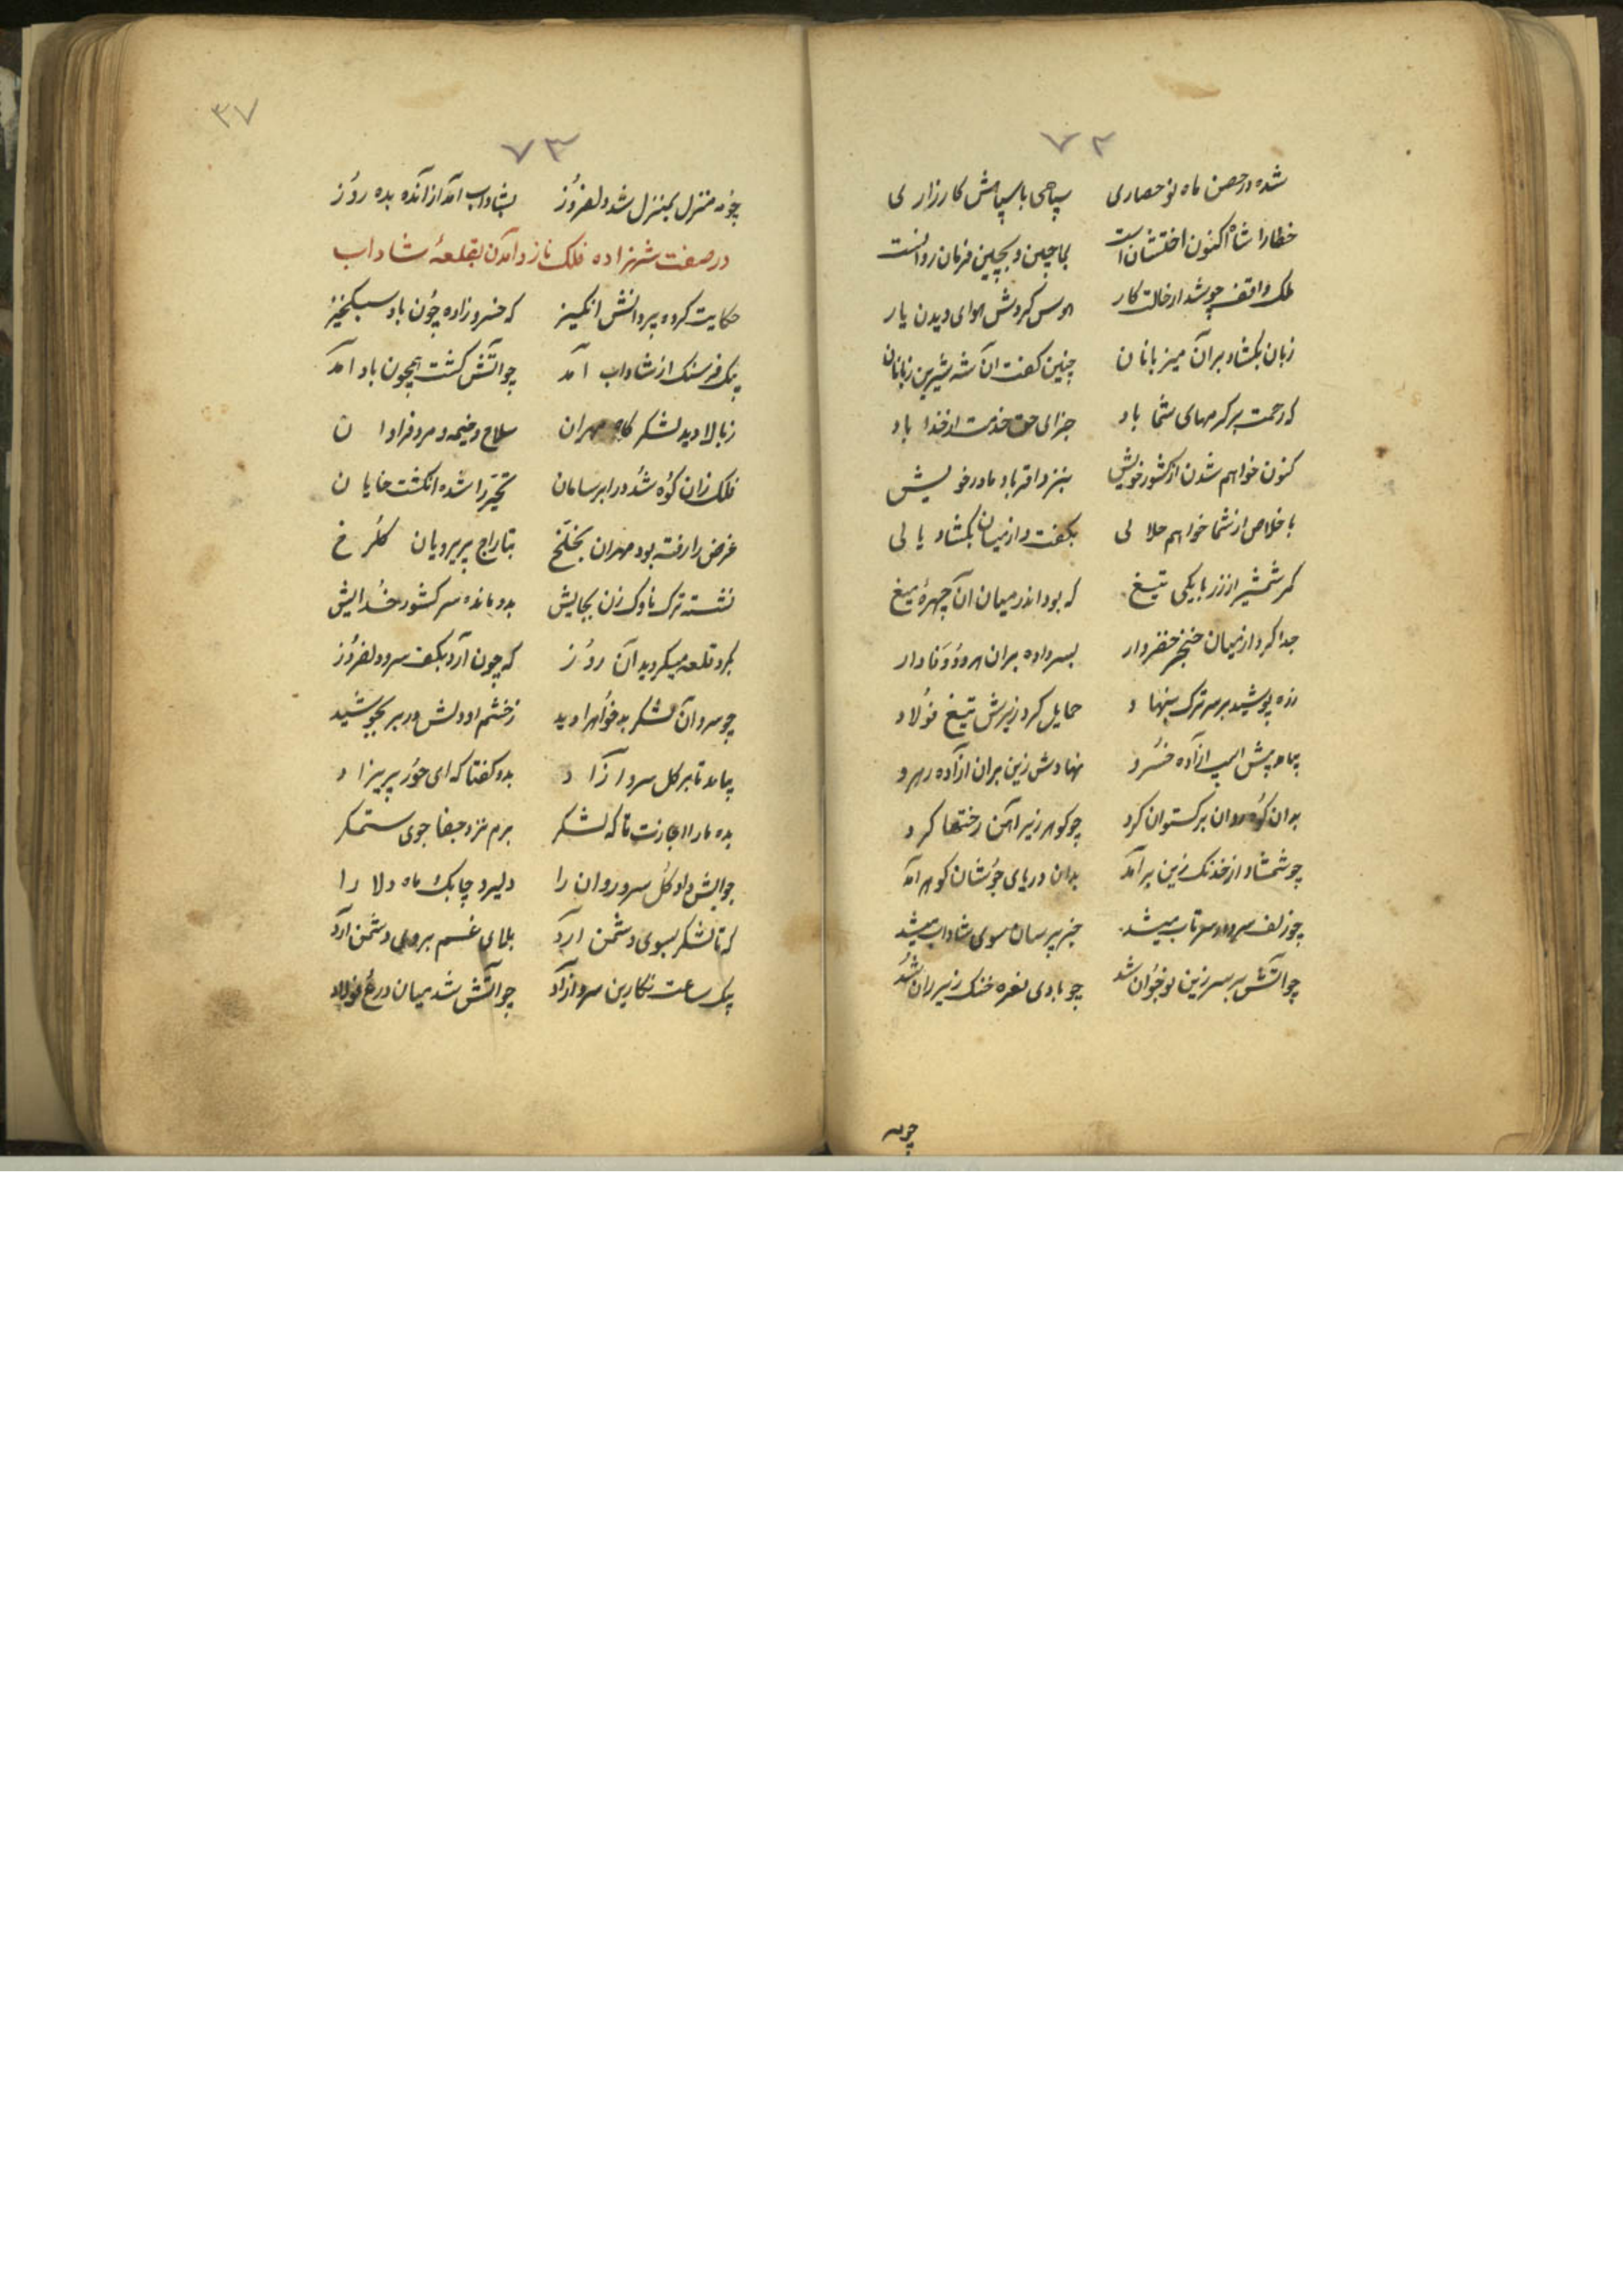 ۷۲
شده در حصن ماه نو حصاری سپاهی با سپاهش کارزاری
خطا را شاه اکنون اخشتان است بماچین و بچین فرمان روانست
ملک واقف چو شد از حالت کار هوس کردش هوای دیدن یار
زبان بکشاد بران میزبانان چنین کفت آن شه شیرین زبانان
که رحمت بر کرمهای شما باد جزای حق خدمت از خدا باد
کنون خواهم شدن از کشور خویش بنزد اقربا و مادر خویش
باخلاص از شما خواهم حلالی بکفت و از میان بکشاد یالی
کمر شمشیر از زر با یکی تیغ که بود اندر میان آن چهرهٔ میغ
جدا کرد از میان خنجر خضروار بسر داده بران هر دو وفادار
زره پوشید بر سر ترک بنهاد حمایل کرد زیرش تیغ فولاد
پیاده پیش اسب آزاده خسرو نهادش زین بران آزاده رهرو
بدان کوه روان برکستوان کرد چو کوهر زیر آهن رختها کرد
چو شمشاد از خدنک زین برآمد بدان دریای جوشان کوهر آمد
چو زلف سرو در سر تاب میشد خبر پرسان سوی شاداب میشد
چو آتش بر سر زین نوجوان شد چو بادی نقره خنک زیر ران شد
چونه
۳۷
۷۳
چونه منزل بمنزل شد دلفروز بشاداب آمد از آنده بده روز
در صفت شهزاده فلک ناز و آمدن بقلعهٔ شاداب
حکایت کرده پیر دانش انکیز که خسروزاده چون باد سبکخیز
بیک فرسنک از شاداب آمد چو آتش کشت همچون باد آمد
ز بالا دید لشکر کاه مهران سلاح و خیمه و مرد فراوان
فلک زان کوه شد در ابر سامان تحیر را شده انکشت خایان
غرض را رفته بود مهران بخلخ بتاراج پریرویان کلرخ
نشسته ترک ناوک زن بجایش بدو مانده سر کشور خدایش
بکرد قلعه میکردید آن روز که چون آرد بکف سرو دلفروز
چو سرو آن لشکر بدخواه را دید ز خشم او دلش در بر بجوشید
بیامد تا بر کل سرو آزاد بدو کفتا که ای حور پریزاد
بده ما را اجازت تا که لشکر برم نزد جفا جوی ستمکر
جوابش داد کل سرو روان را دلیر و چابک ماه دلارا
که تا لشکر بسوی دشمن آرد بلای غم بروی دشمن آرد
بیک ساعت نکارین سرو آزاد چو آتش شد میان درع فولاد